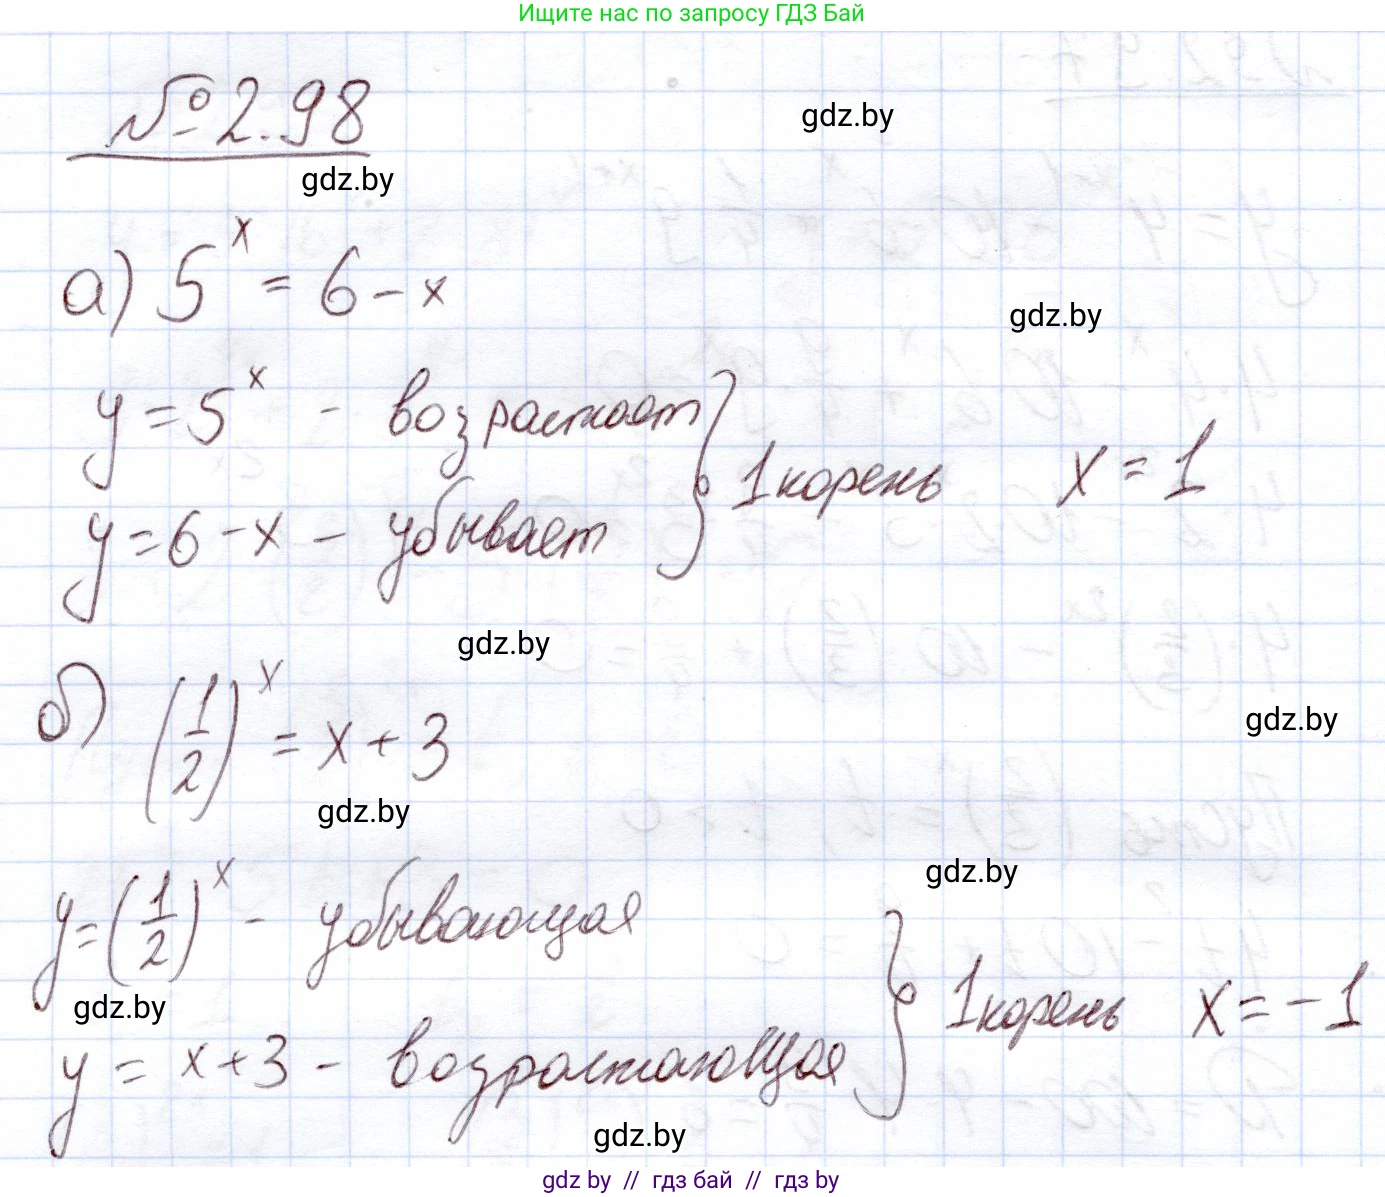 Ищите нас по запросу ГДЗ Бай
№2.98
gdz.by
gdz.by
а) 5^x = 6 - x
gdz.by
y = 5^x - возрастает
y = 6 - x - убывает
} 1 корень x = 1
gdz.by
б) (1/2)^x = x + 3
gdz.by
gdz.by
y = (1/2)^x - убывающая
gdz.by
gdz.by
y = x + 3 - возрастающая
} 1 корень x = -1
gdz.by
gdz.by // гдз бай // гдз by